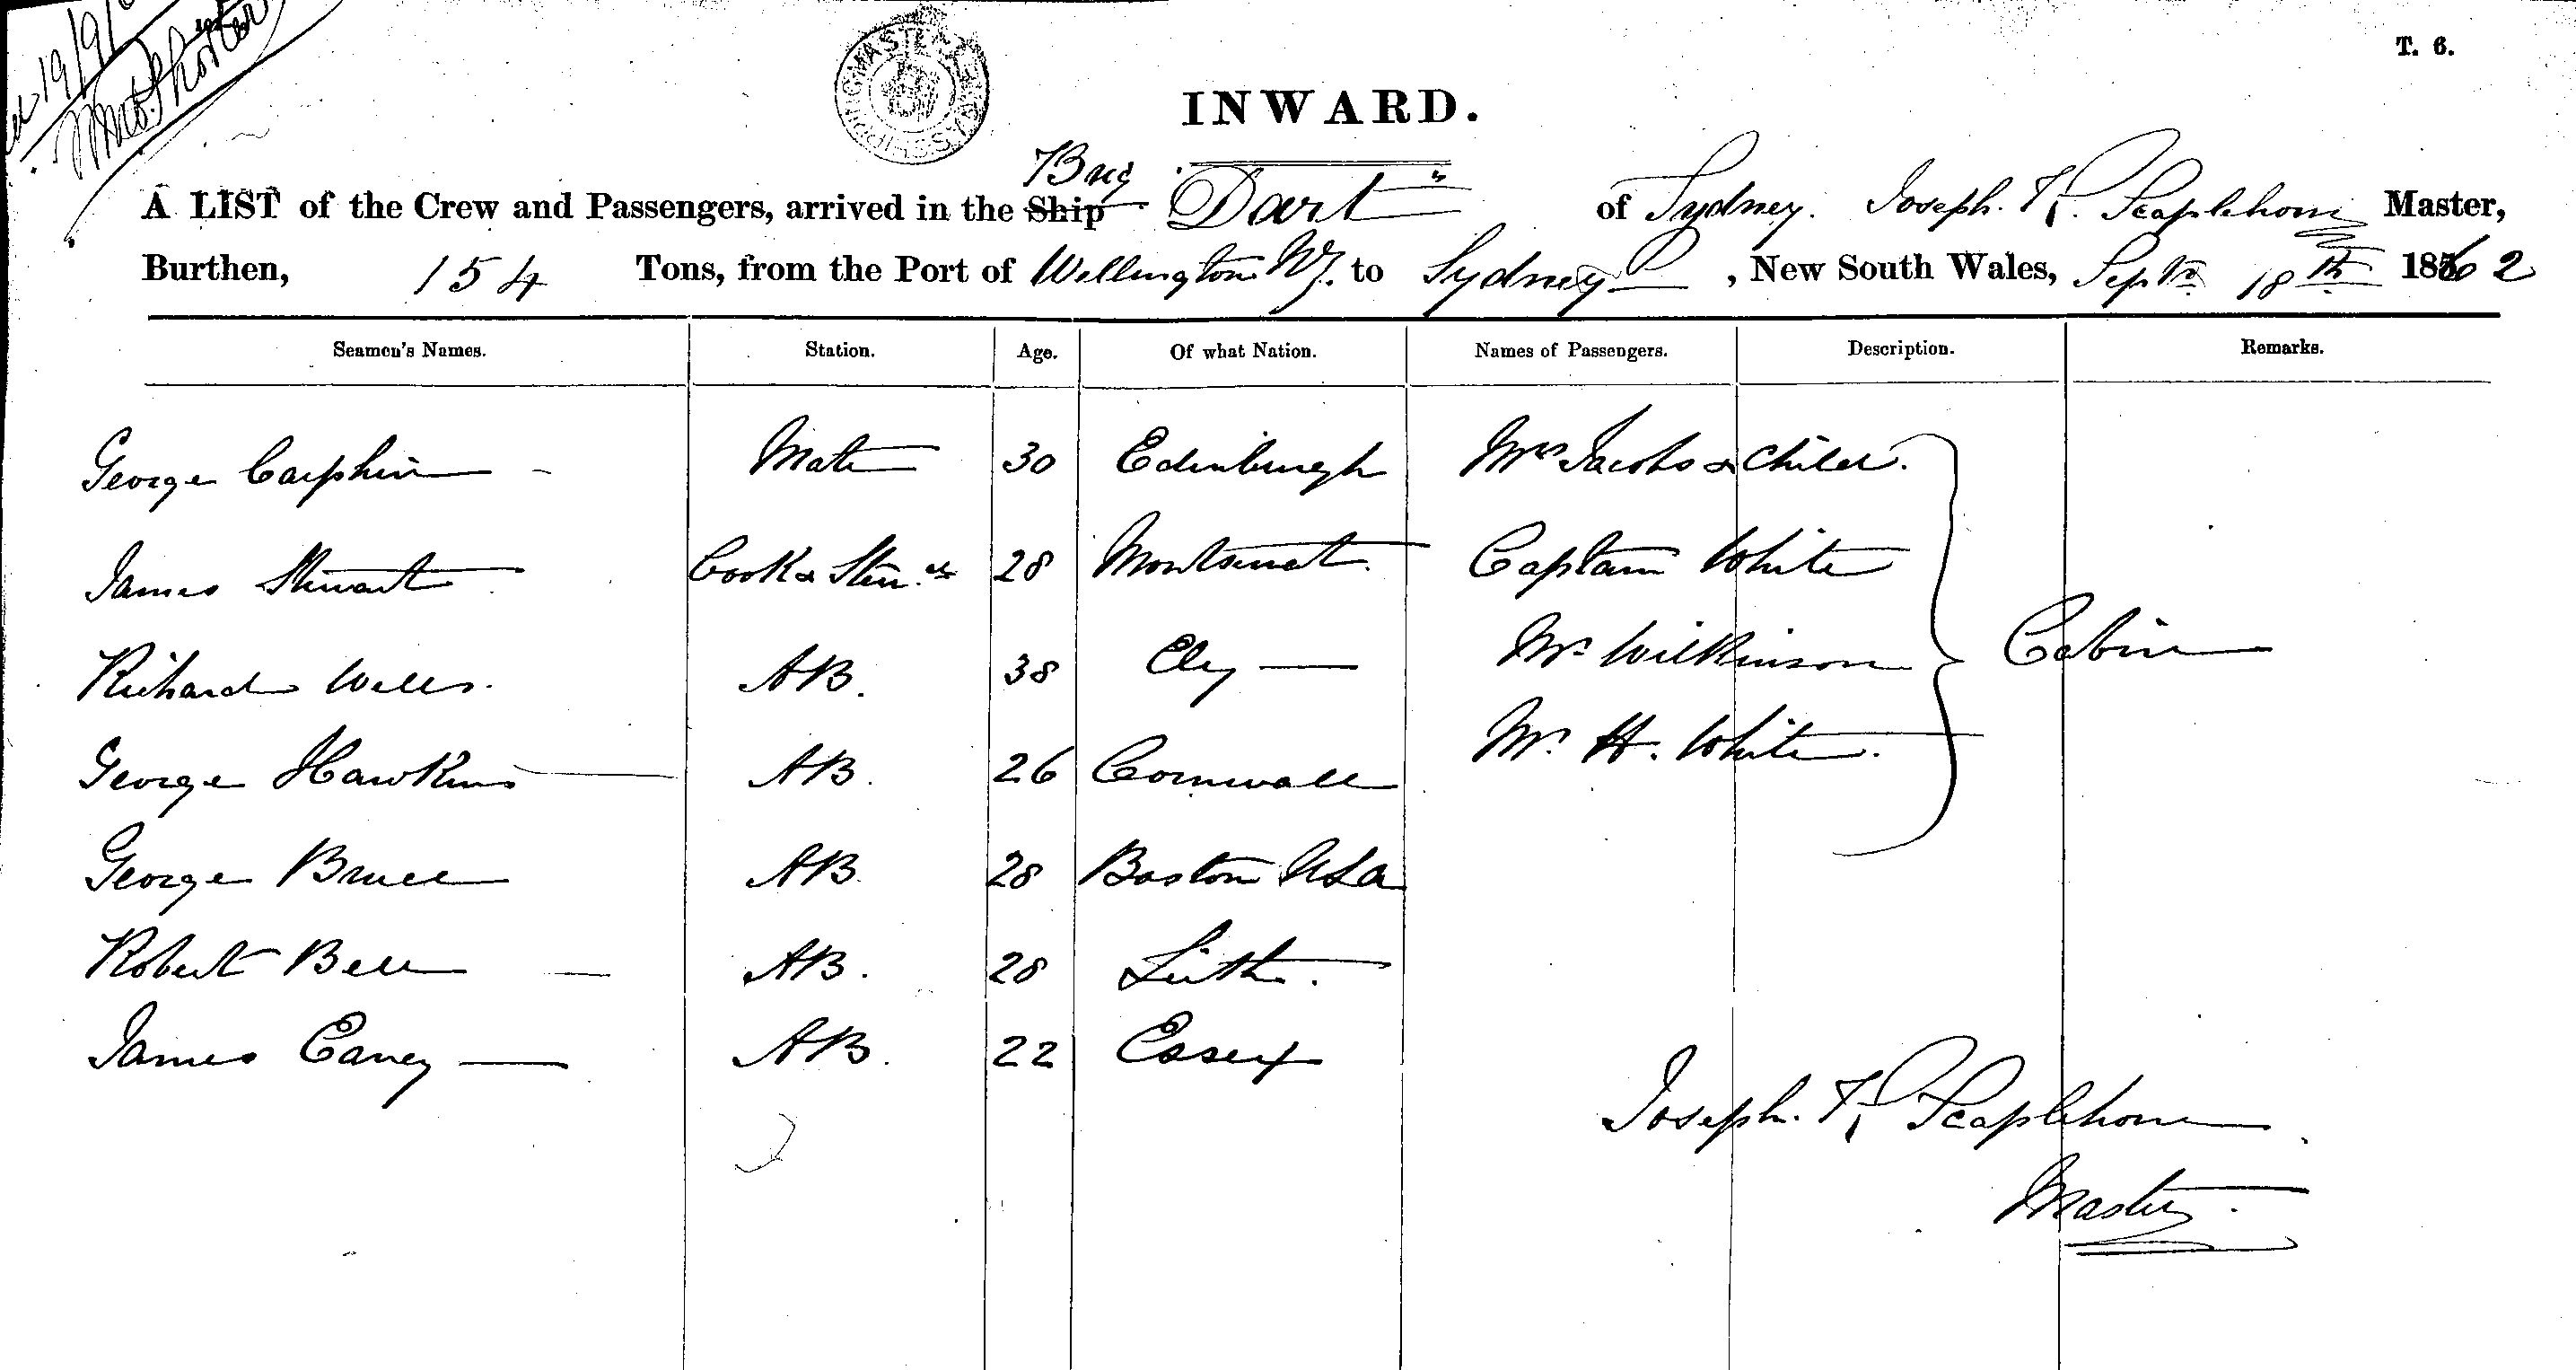 T. 6.
INWARD.
Brig
A LIST of the Crew and Passengers, arrived in the Ship "Dart" of Sydney. Joseph. F. Scaplehorn Master,
Burthen, 154 Tons, from the Port of Wellington NZ. to Sydney, New South Wales, Septr. 18th 1862
Seamen's Names. Station. Age. Of what Nation. Names of Passengers. Description. Remarks.
George Carphin Mate 30 Edinburgh Mrs Jacobs & Child.
James Stewart Cook & Stewd 28 Montserrat. Captain White
Richard Wells. AB. 38 Ely Mr Wilkinson Cabin
George Hawkins AB. 26 Cornwall Mr. H. White.
George Bruce AB. 28 Boston USA
Robert Bell AB. 28 Leith.
James Caney AB. 22 Essex
Joseph. F. Scaplehorn.
Master.